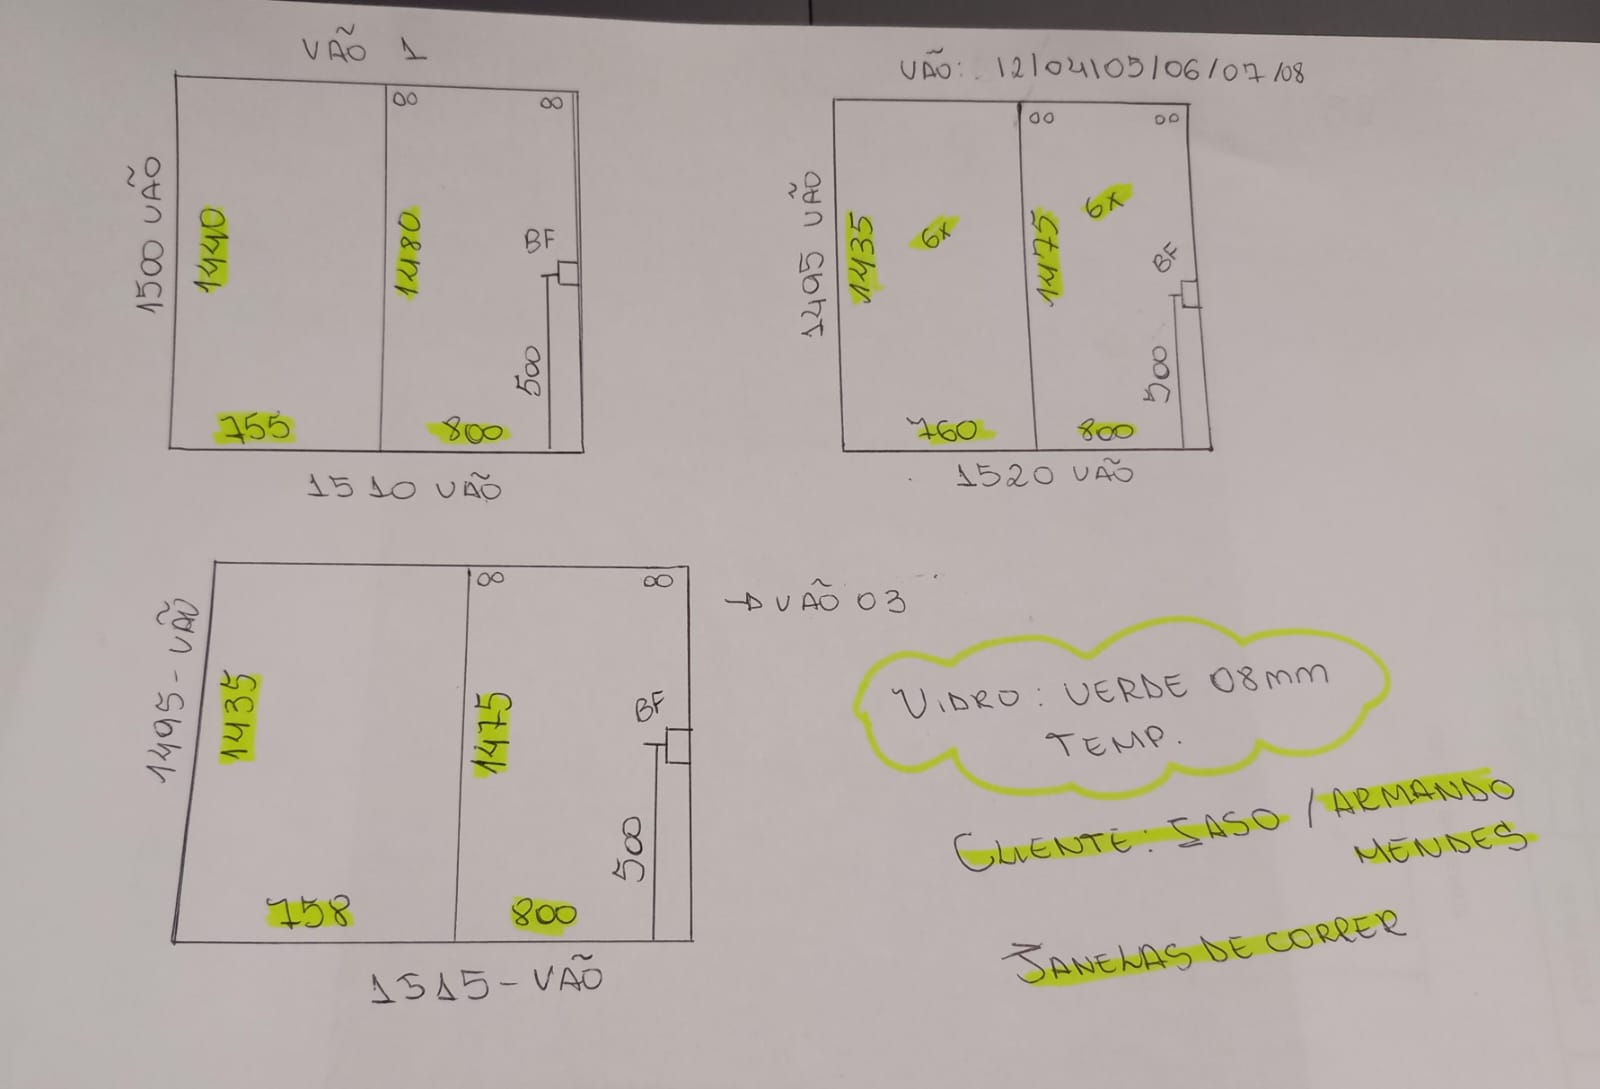 VÃO 1
1500 VÃO
1440
1480
BF
500
755
800
1510 VÃO
VÃO: 12/04/05/06/07/08
1495 VÃO
1435
6x
1475
6x
BF
500
760
800
1520 VÃO
→ VÃO 03
1495 - VÃO
1435
1475
BF
500
758
800
1515 - VÃO
VIDRO: VERDE 08mm
TEMP.
CLIENTE: IASO / ARMANDO
MENDES
JANELAS DE CORRER